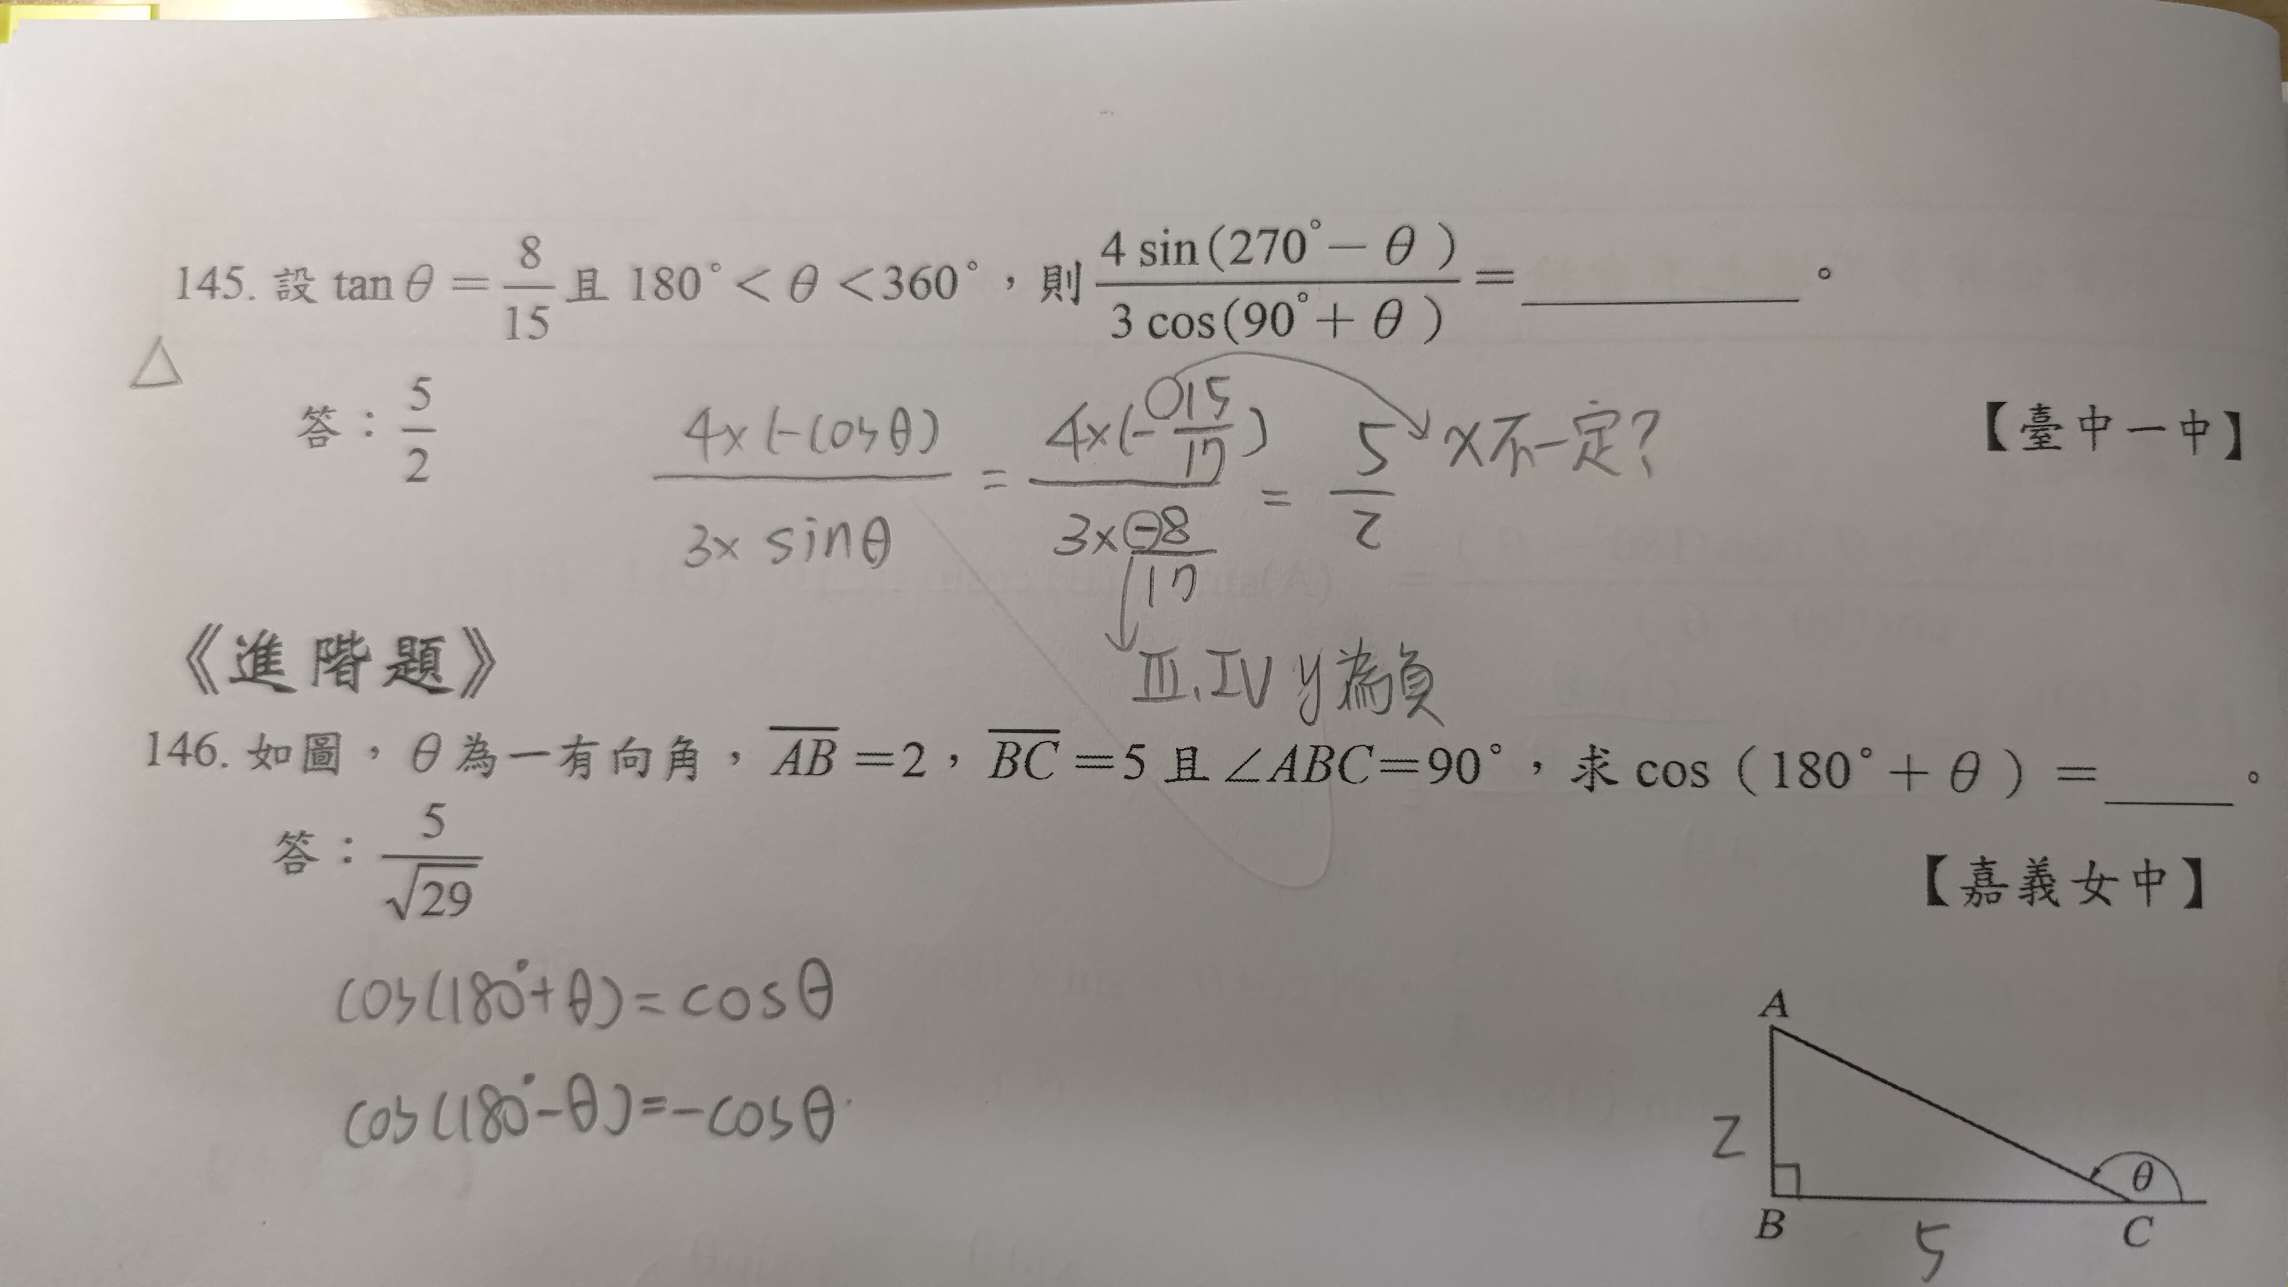 145. 設 tan θ = 8/15 且 180° < θ < 360°，則 4 sin(270° − θ) / 3 cos(90° + θ) = ________ 。
△
答：5/2
4×(-cosθ) / 3× sinθ = 4×(-○15/17) / 3×⊖8/17 = 5/2
x不一定?
【臺中一中】
III、IV y為負
《進階題》
146. 如圖，θ 為一有向角，AB = 2，BC = 5 且 ∠ABC = 90°，求 cos（180° + θ）= ____ 。
答：5/√29
【嘉義女中】
cos(180°+θ)=cosθ
cos(180°-θ)=-cosθ
A
2
θ
B
5
C